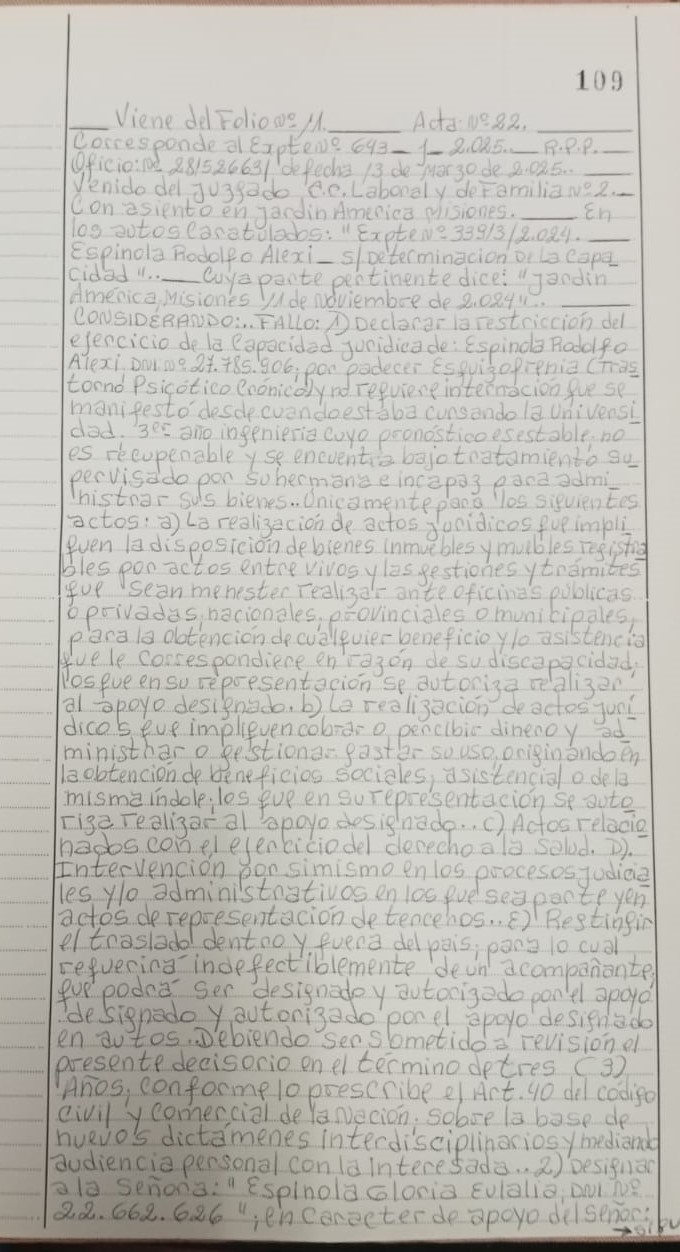 109
Viene del Folio Nº 11. Acta: Nº 22.
Corresponde al Expte Nº 643-1-2.025. R.P.P.
Oficio: Nº 281526631 de fecha 13 de Marzo de 2.025..
Venido del Juzgado C.C. Laboral y de Familia Nº 2.
Con asiento en Jardin America Misiones. En
los autos Caratulados: "Expte Nº 33913/2.024.
Espinola Rodolfo Alexi_ S/ Determinacion De La Capa
cidad".. Cuya parte pertinente dice: "Jardin
América, Misiones 11 de Noviembre de 2.024"..
CONSIDERANDO:.. FALLO: 1) Declarar la restriccion del
ejercicio de la Capacidad Juridica de: Espinola Rodolfo
Alexi. DNI Nº 27.785.906, por padecer Esquizofrenia (Tras
torno Psicótico Crónico) y no requiere internacion que se
manifestó desde cuando estaba cursando la Universi
dad. 3er año ingenieria cuyo pronóstico es estable no
es recuperable y se encuentra bajo tratamiento su
pervisado por su hermana e incapaz para admi
nistrar sus bienes.. Únicamente para los siguientes
actos: a) La realización de actos juridicos que impli
quen la disposición de bienes inmuebles y muebles registra
bles por actos entre vivos y las gestiones y trámites
que sean menester realizar ante oficinas públicas
o privadas, nacionales, provinciales o municipales,
para la obtención de cualquier beneficio y/o asistencia
que le correspondiere en razón de su discapacidad.
los que en su representación se autoriza realizar
al apoyo designado. b) La realización de actos juri
dicos que impliquen cobrar o percibir dinero y ad
ministrar o gestionar gastar su uso, originando en
la obtención de beneficios sociales, asistencial o de la
misma indole, los que en su representación se auto
riza realizar al apoyo designado.. c) Actos relacio
nados con el ejercicio del derecho a la salud. D).
Intervención por si mismo en los procesos judicia
les y/o administrativos en los que sea parte y en
actos de representación de terceros.. E) Restingir
el traslado dentro y fuera del pais; para lo cual
requerira indefectiblemente de un acompañante,
que podrá ser designado y autorizado por el apoyo
designado y autorizado por el apoyo designado
en autos. Debiendo ser sometido a revisión el
presente decisorio en el término de tres (3)
Años, conforme lo prescribe el Art. 40 del código
civil y comercial de la Nación, sobre la base de
nuevos dictámenes interdisciplinarios y mediando
audiencia personal con la interesada.. 2) Designar
a la Señora: "Espinola Gloria Eulalia, DNI Nº
22.662.626", en Caracter de apoyo del señor: